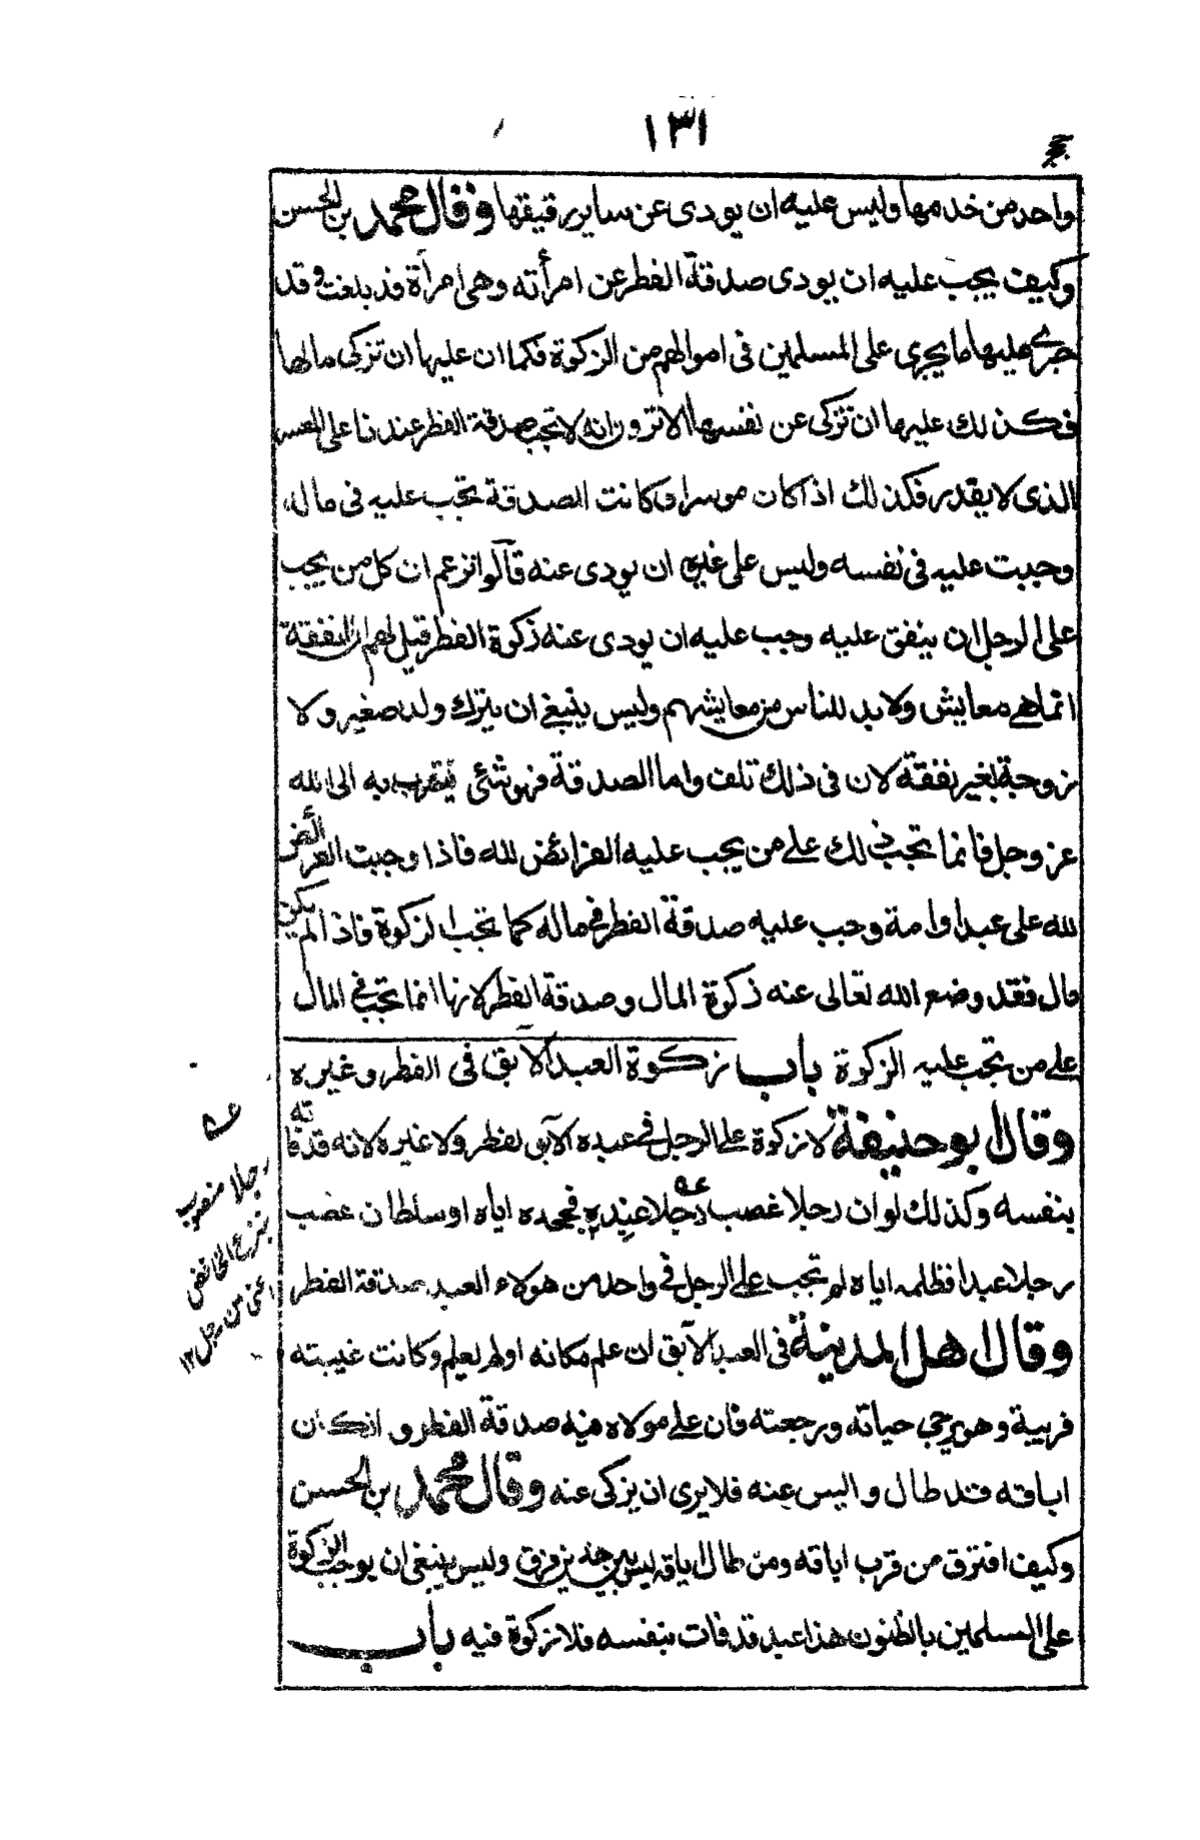 ١٣١
واحد من خدمها وليس عليه ان يودى عن ساير رقيقها وقال محمد بن الحسن
وكيف يجب عليه ان يودى صدقة الفطر عن امرأته وهى امرأة قد بلغت وقد
جرى عليها ما يجرى على المسلمين فى اموالهم من الزكوة فكما ان عليها ان تزكى مالها
فكذلك عليها ان تزكى عن نفسها الا ترون انه لا تجب صدقة الفطر عندنا على المعسر
الذى لا يقدر فكذلك اذا كان موسرا وكانت الصدقة تجب عليه فى ماله
وجبت عليه فى نفسه وليس على غيره ان يودى عنه قالوا نزعم ان كل من يجب
على الرجل ان ينفق عليه وجب عليه ان يودى عنه زكوة الفطر قيل لهم ان النفقة
انما هى معايش ولا بد للناس من معايشهم وليس ينبغى ان يترك ولد صغير ولا
زوجة بغير نفقة لان فى ذلك تلف واما الصدقة فهو شئى يتقرب به الى الله
عز وجل فانما تجب ذلك على من يجب عليه الفرائض لله فاذا وجبت الفرائض
لله على عبد او امة وجب عليه صدقة الفطر فى ماله كما تجب الزكوة فاذا لم يكن
مال فقد وضع الله تعالى عنه زكوة المال وصدقة الفطر لانها انما تجب فى المال
على من تجب عليه الزكوة باب زكوة العبد الآبق فى الفطر وغيره
وقال ابو حنيفة لا زكوة على الرجل فى عبده الآبق لفطر ولا غيره لانه قد فاته
بنفسه وكذلك لو ان رجلا غصب رجلا عبده فجحده اياه او سلطان غصب
رجلا عبدا فظلمه اياه لم تجب على الرجل فى واحد من هولاء العبد صدقة الفطر
وقال اهل المدينة فى العبد الآبق ان علم مكانه او لم يعلم وكانت غيبته
قريبة وهو يرجى حياته ورجعته فان على مولاه فيه صدقة الفطر وان كان
اباقه قد طال وايس عنه فلا يرى ان يزكى عنه وقال محمد بن الحسن
وكيف افترق من قرب اباقه ومن طال اباقه ليس بين هذين فرق وليس ينبغى ان يوجب الزكوة
على المسلمين بالظنون هذا عبد قد فات بنفسه فلا زكوة فيه باب
عه
رجلا منصوب
بنزع الخافض
اعنى من رجل ١٢